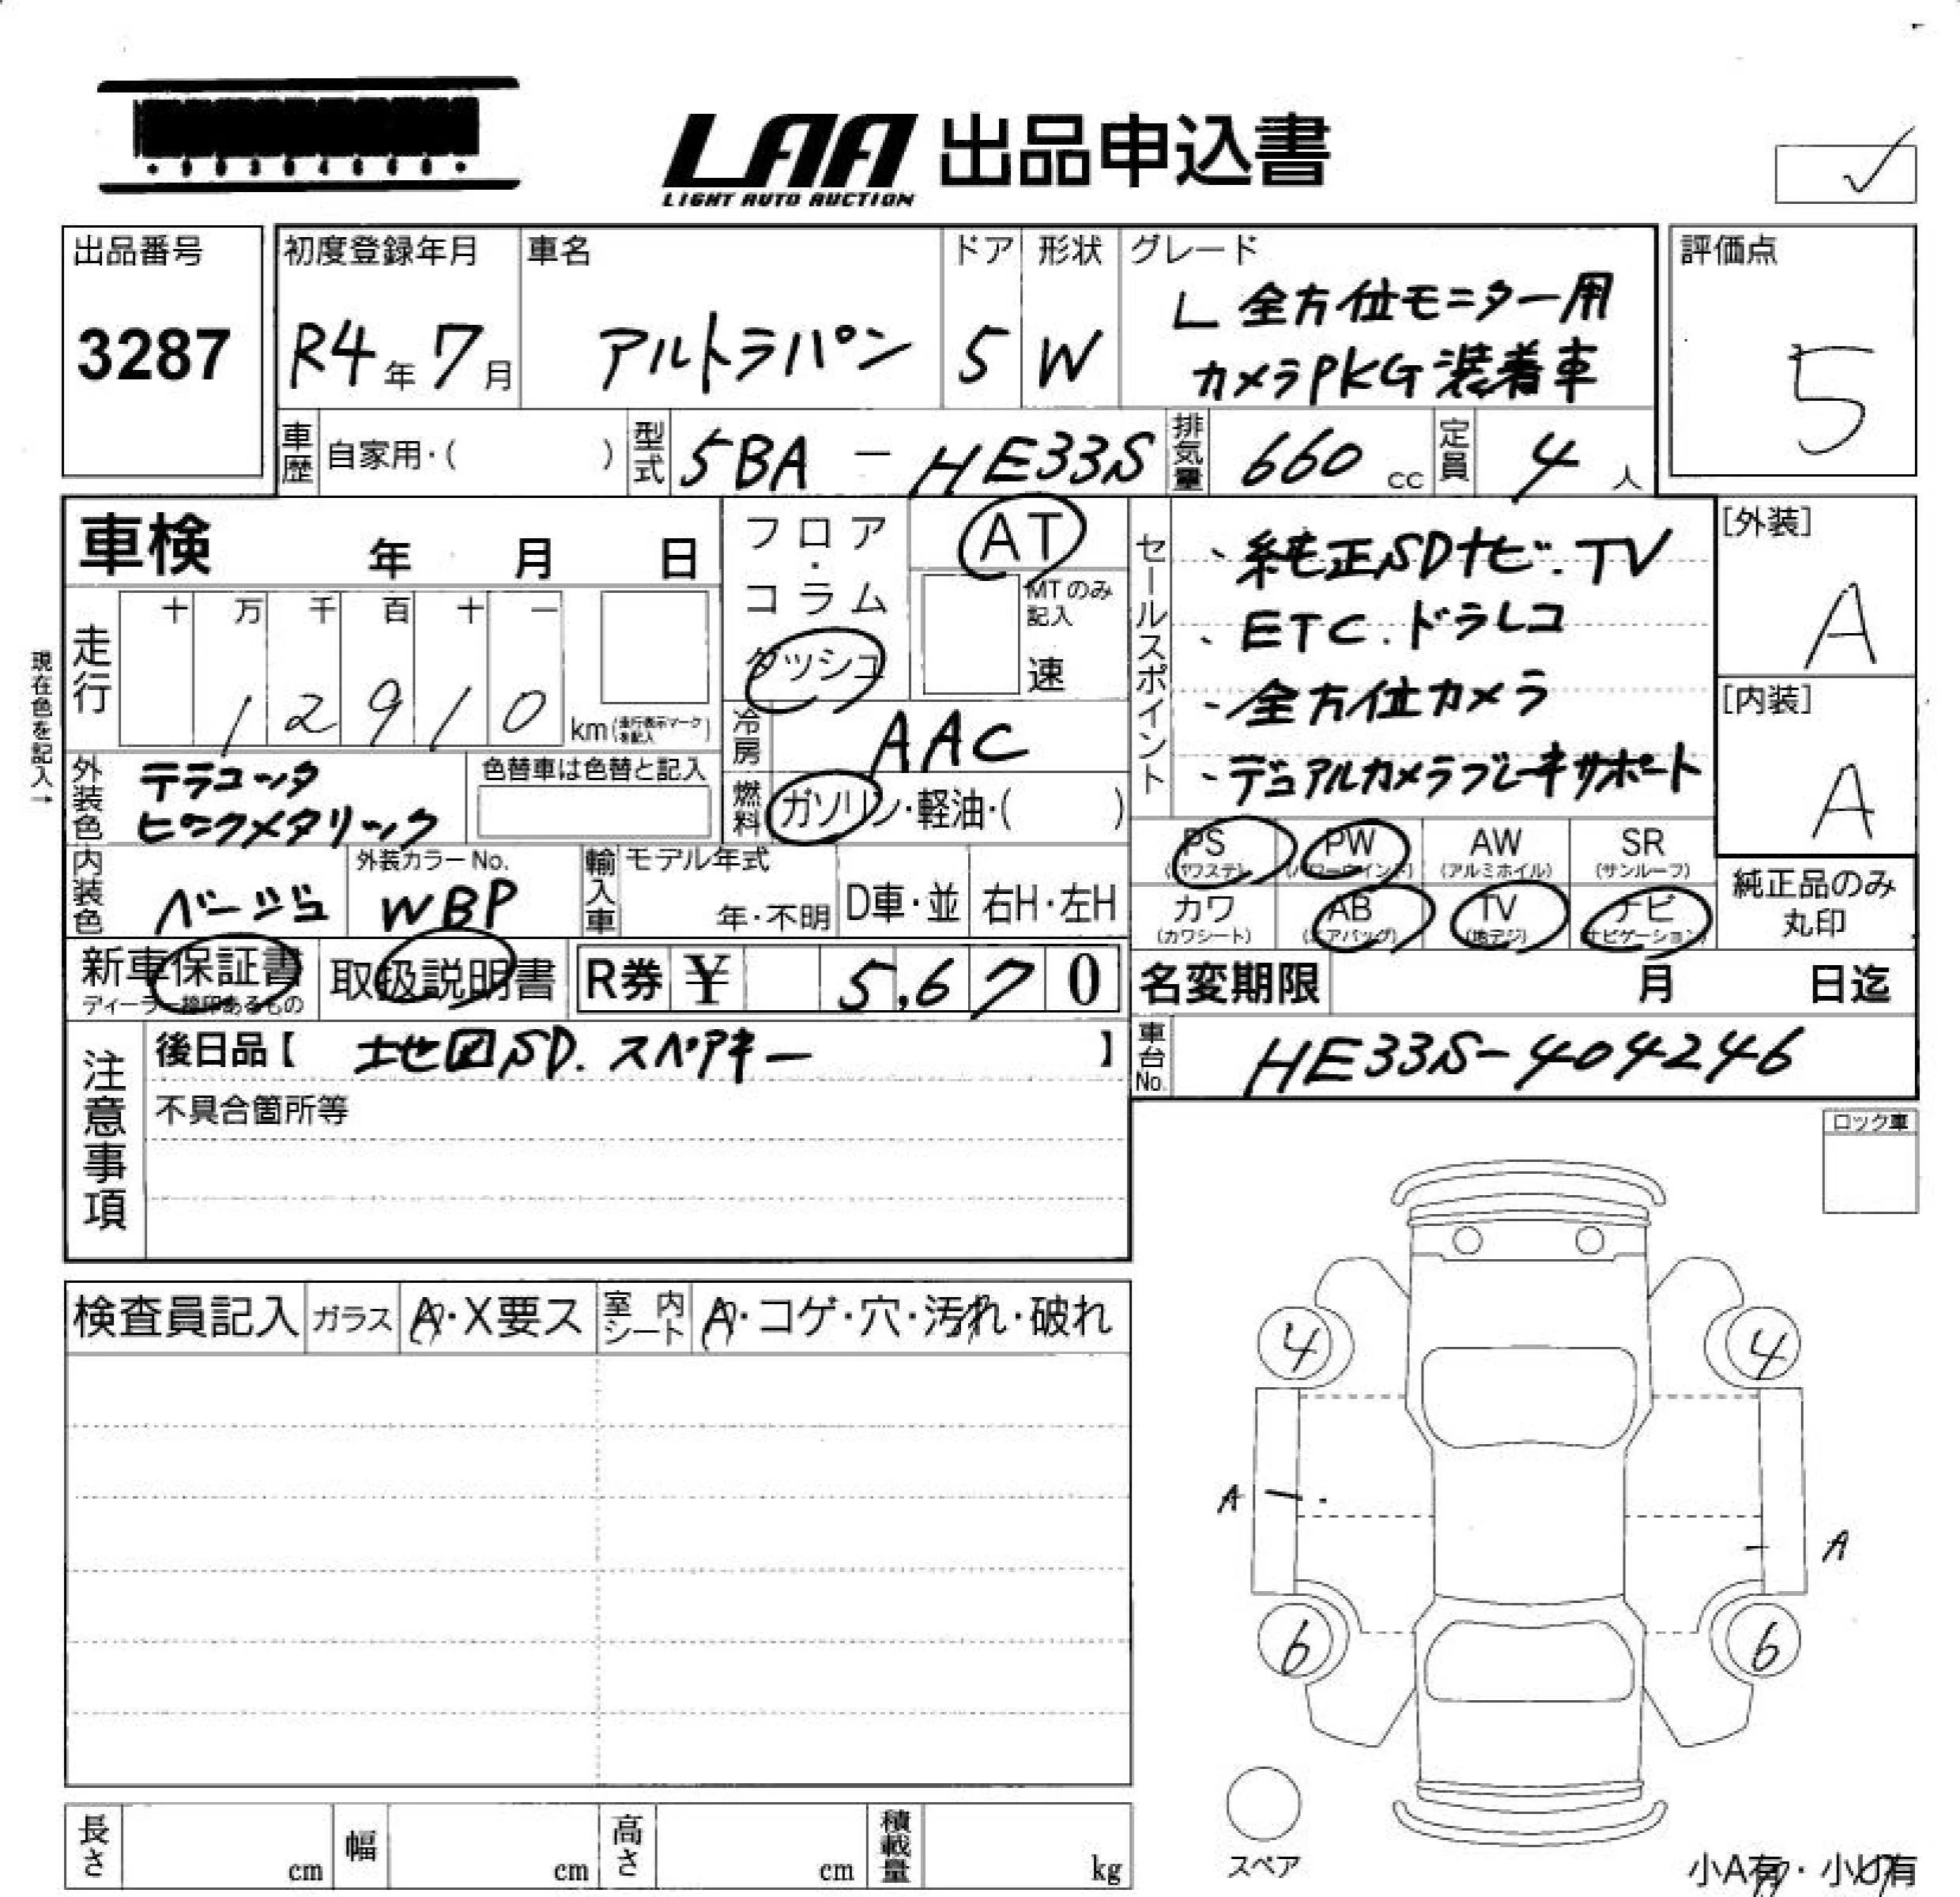 LAA 出品申込書
LIGHT AUTO AUCTION
出品番号
3287
初度登録年月
R4年 7月
車名
アルトラパン
ドア
5
形状
W
グレード
L 全方位モニター用
カメラPKG装着車
評価点
5
車歴 自家用・( )
型式 5BA - HE33S
排気量 660 cc
定員 4 人
車検 年 月 日
フロア・コラム
ダッシュ
AT
MTのみ記入
速
セールスポイント
、純正SDナビ.TV
、ETC.ドラレコ
、全方位カメラ
、デュアルカメラブレーキサポート
[外装]
A
[内装]
A
現在色を記入→
走行
十 万 千 百 十 一
1 2 9 1 0 km(走行表示マークを記入)
冷房 AAC
外装色 テラコッタ
ピンクメタリック
色替車は色替と記入
燃料 ガソリン・軽油・( )
PS (パワステ)
PW (パワーウインド)
AW (アルミホイル)
SR (サンルーフ)
カワ (カワシート)
AB (エアバッグ)
TV (地デジ)
ナビ (ナビゲーション)
純正品のみ
丸印
内装色 ベージュ
外装カラーNo.
WBP
輸入車 モデル年式
年・不明
D車・並 右H・左H
新車保証書
ディーラー捺印あるもの
取扱説明書
R券 ¥ 5,670
名変期限 月 日迄
注意事項
後日品【 地図SD. スペアキー 】
不具合箇所等
車台No. HE33S-404246
ロック車
検査員記入 ガラス A・X要ス 室内シート A・コゲ・穴・汚れ・破れ
4 4
A A
6 6
スペア
小A有・小U有
長さ cm 幅 cm 高さ cm 積載量 kg